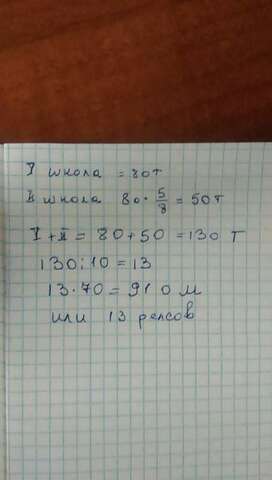 I школа = 80т
II школа 80 · 5/8 = 50т
I + II = 80 + 50 = 130 т
130 : 10 = 13
13 · 70 = 910 м
или 13 рельсов